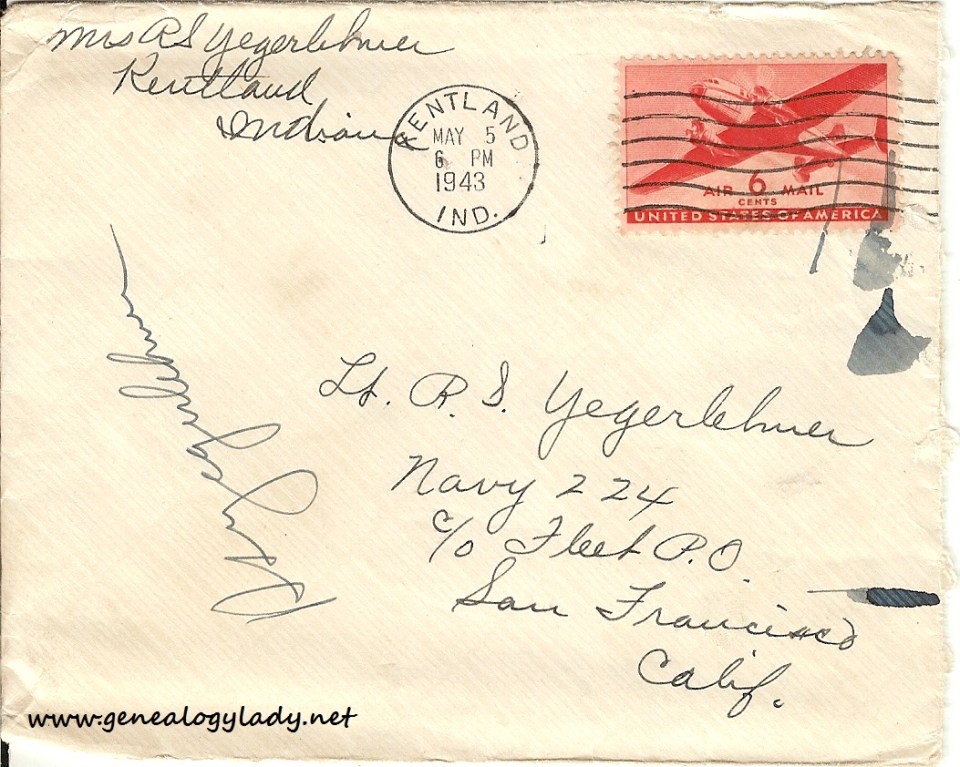 Mrs R S Yegerlehner
Kentland
Indiana
KENTLAND
MAY 5
6 PM
1943
IND.
AIR 6 MAIL
CENTS
UNITED STATES OF AMERICA
Lt. R. S. Yegerlehner
Navy 224
c/o Fleet P.O.
San Francisco
Calif.
R S Yegerlehner
www.genealogylady.net